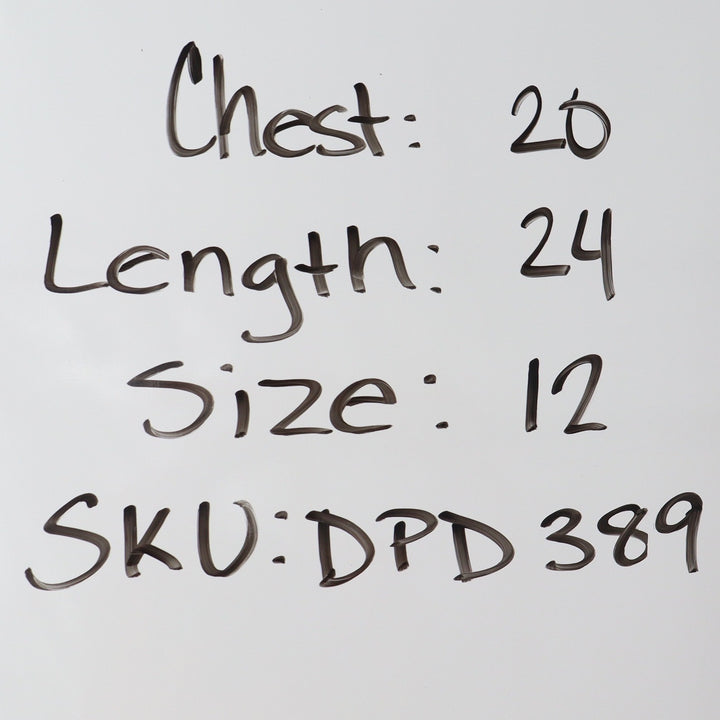 Chest: 20
Length: 24
Size: 12
SKU: DPD 389